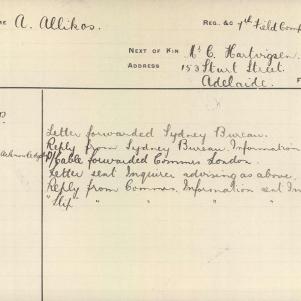 ME A. Allikos. REG. &c 7th Field Comp
NEXT OF KIN Mr C. Hartvigsen
ADDRESS 153 Sturt Street.
Adelaide.
Letter forwarded Sydney Bureau.
Reply from Sydney Bureau. Information
Cable forwarded Commrs London.
Letter sent Inquirer advising as above.
Reply from Commrs. Information sent In
" Slip " " " "